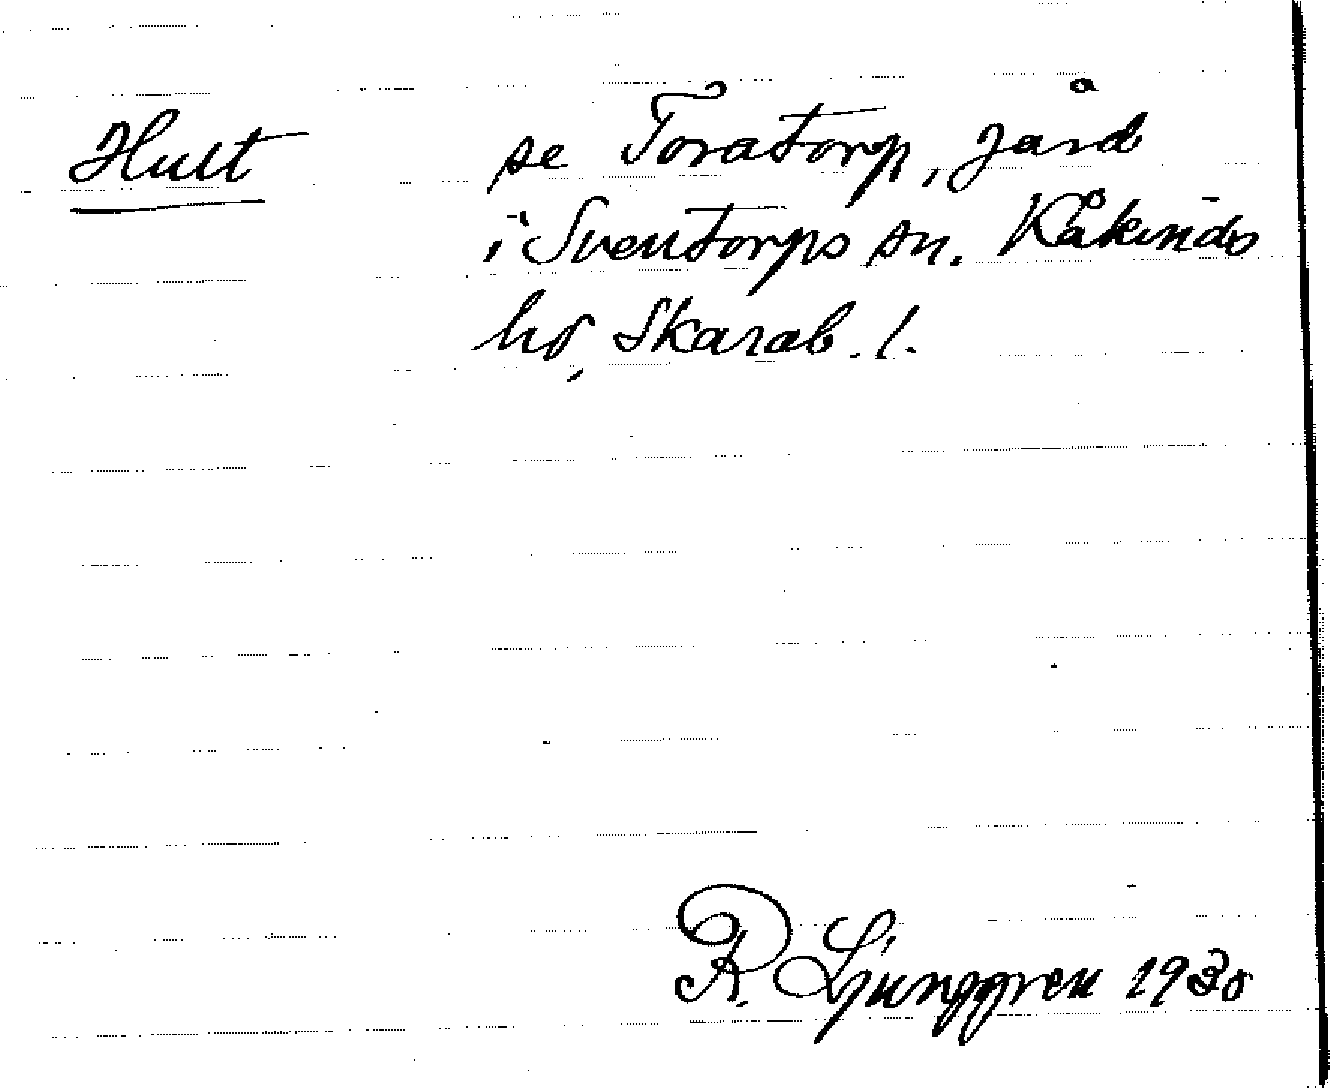 Hult se Toratorp, gård
i Sventorps sn. Kåkinds
hd, Skarab. l.
R. Ljunggren 1930